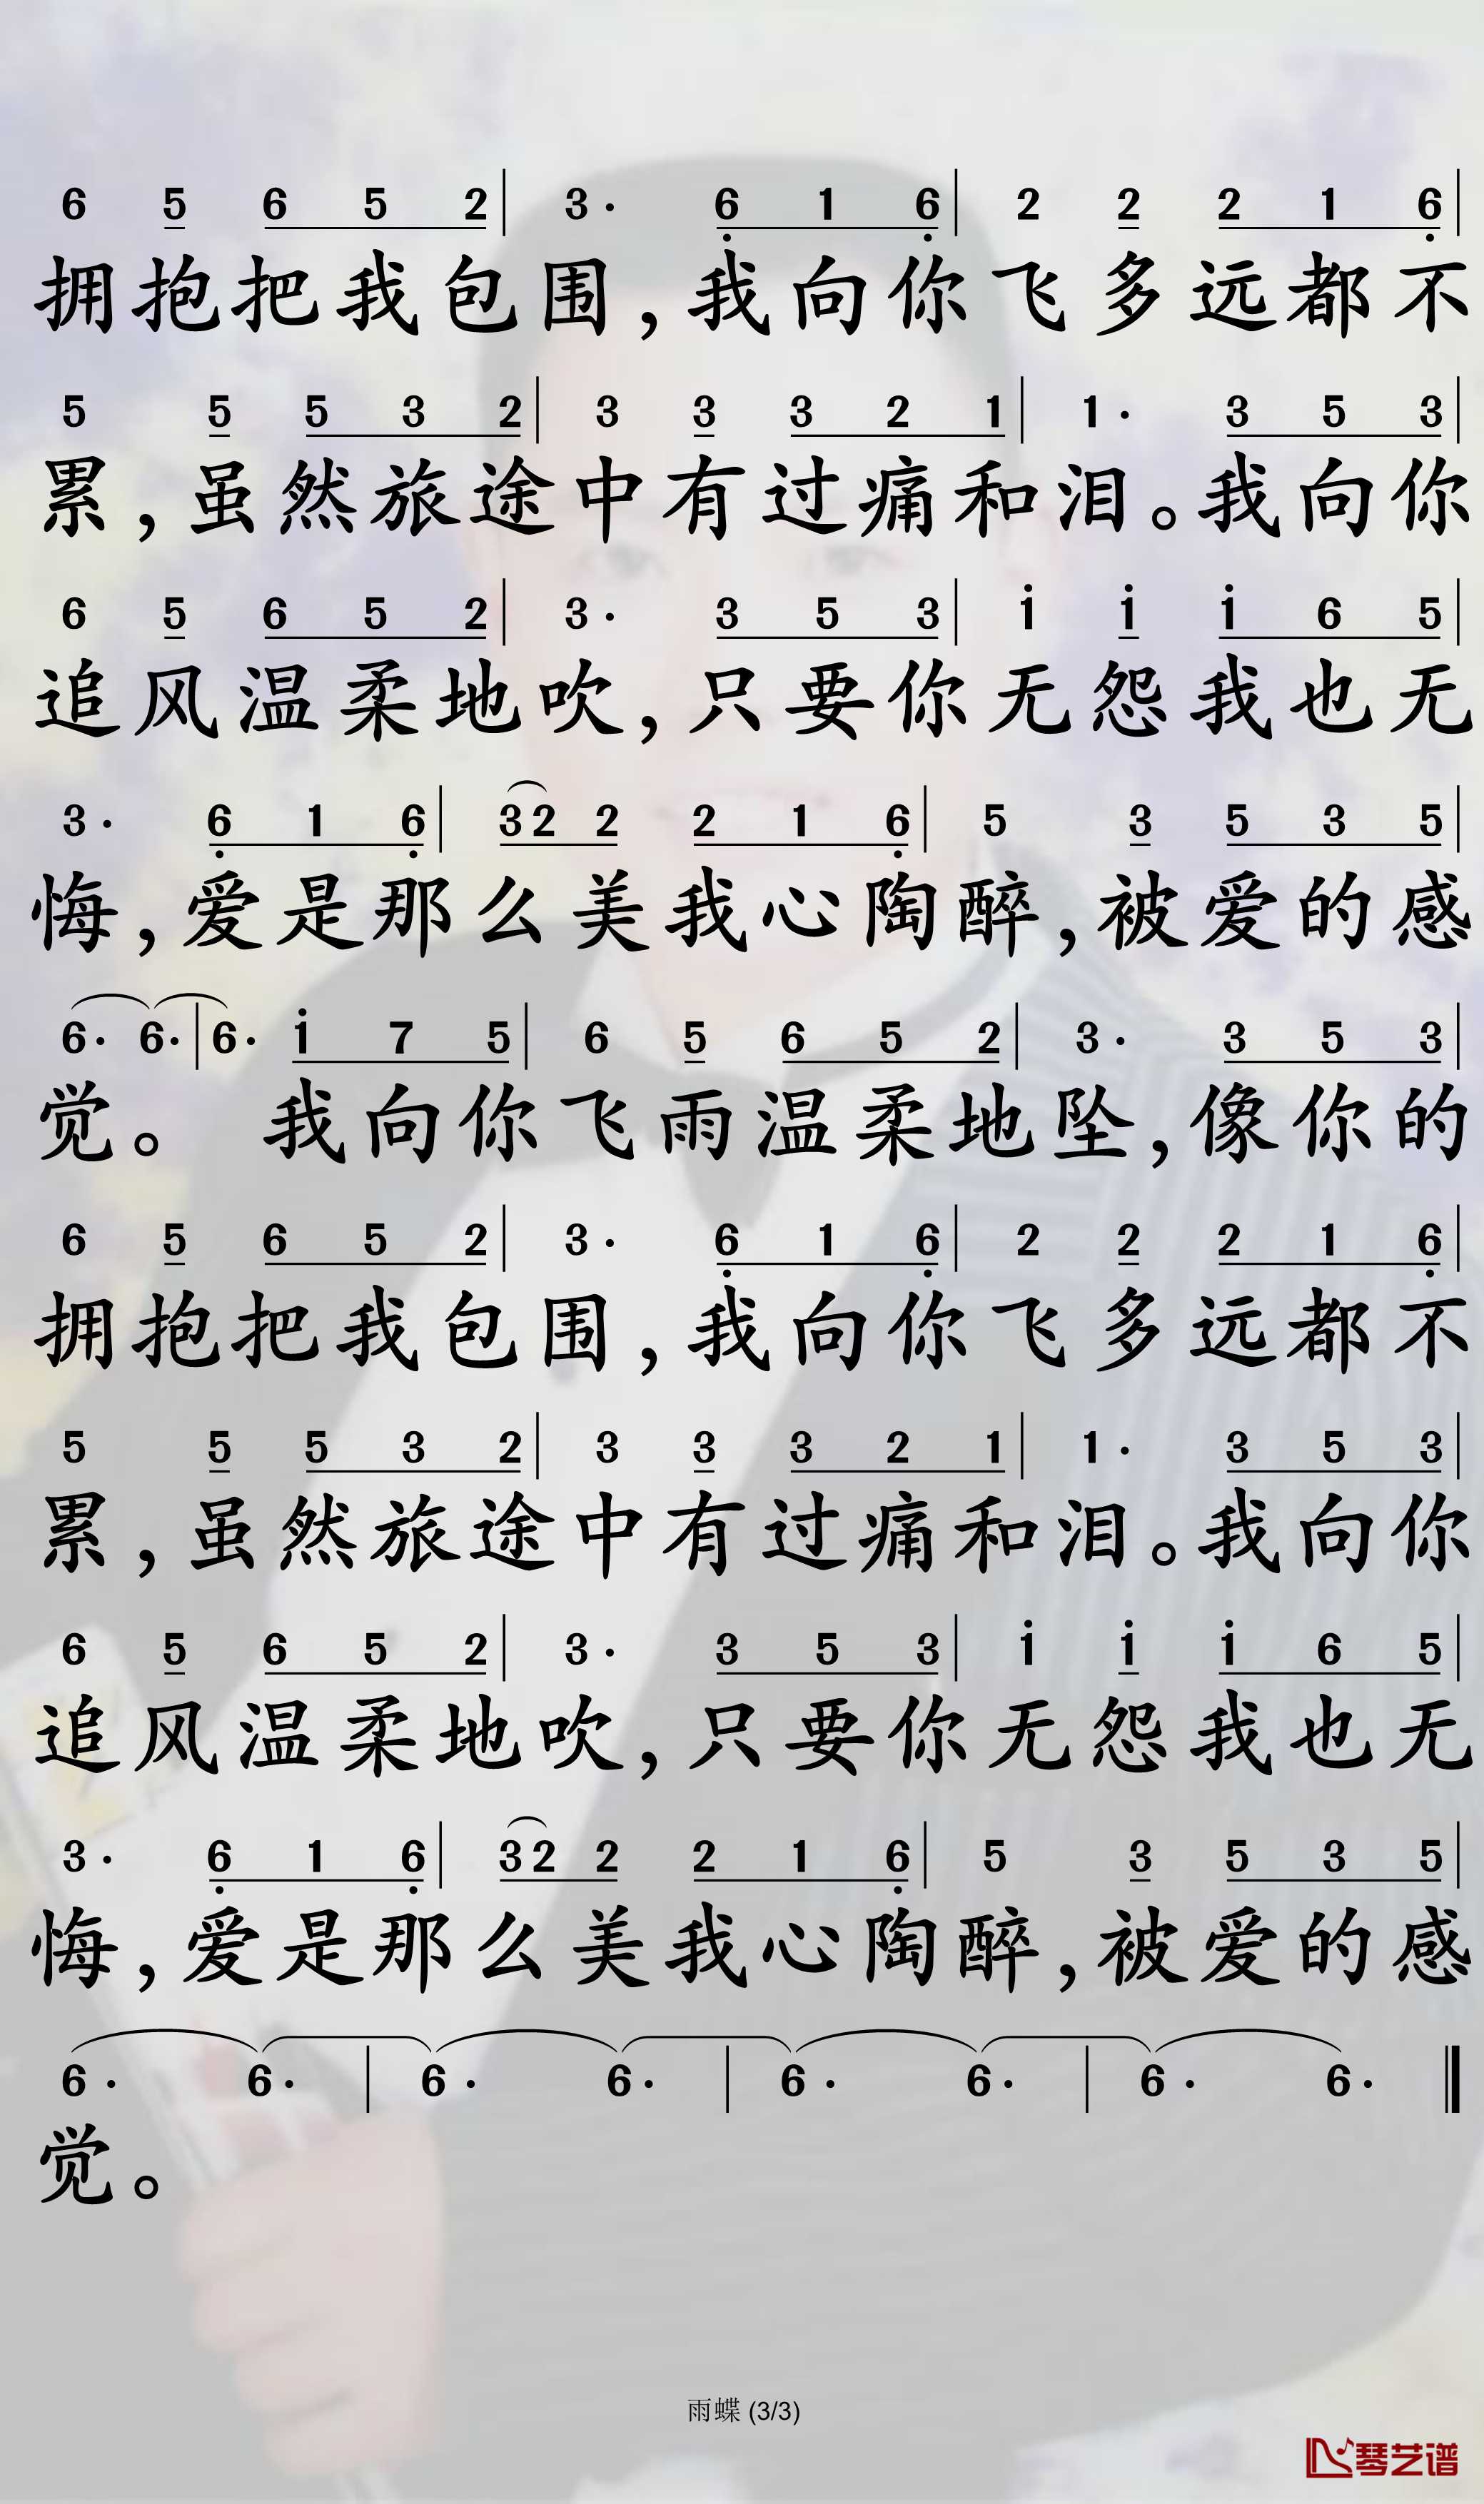 6 5 6 5 2 | 3· 6̣ 1 6̣ | 2 2 2 1 6̣ |
拥抱把我包围,我向你飞多远都不
5 5 5 3 2 | 3 3 3 2 1 | 1· 3 5 3 |
累,虽然旅途中有过痛和泪。我向你
6 5 6 5 2 | 3· 3 5 3 | i i i 6 5 |
追风温柔地吹,只要你无怨我也无
3· 6̣ 1 6̣ | 32 2 2 1 6̣ | 5 3 5 3 5 |
悔,爱是那么美我心陶醉,被爱的感
6· 6· | 6· i 7 5 | 6 5 6 5 2 | 3· 3 5 3 |
觉。 我向你飞雨温柔地坠,像你的
6 5 6 5 2 | 3· 6̣ 1 6̣ | 2 2 2 1 6̣ |
拥抱把我包围,我向你飞多远都不
5 5 5 3 2 | 3 3 3 2 1 | 1· 3 5 3 |
累,虽然旅途中有过痛和泪。我向你
6 5 6 5 2 | 3· 3 5 3 | i i i 6 5 |
追风温柔地吹,只要你无怨我也无
3· 6̣ 1 6̣ | 32 2 2 1 6̣ | 5 3 5 3 5 |
悔,爱是那么美我心陶醉,被爱的感
6· 6· | 6· 6· | 6· 6· | 6· 6· ‖
觉。
雨蝶 (3/3)
琴艺谱